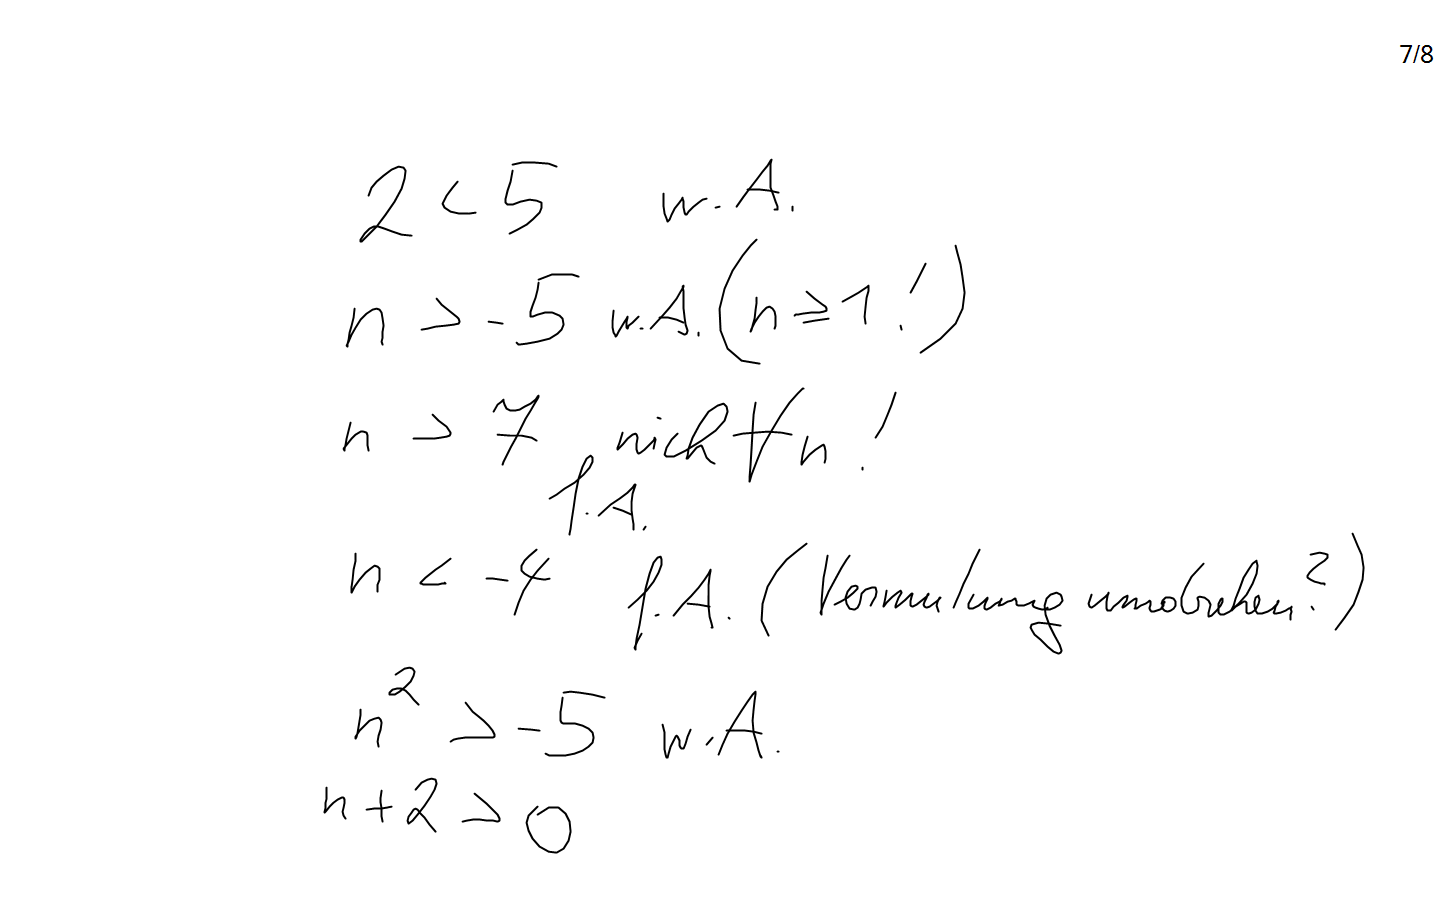 7/8
2 < 5 w.A.
n > -5 w.A. (n ≥ 1!)
n > 7 nicht ∀n!
f.A.
n < -4 f.A. (Vermutung umdrehen?)
n² > -5 w.A.
n + 2 > 0